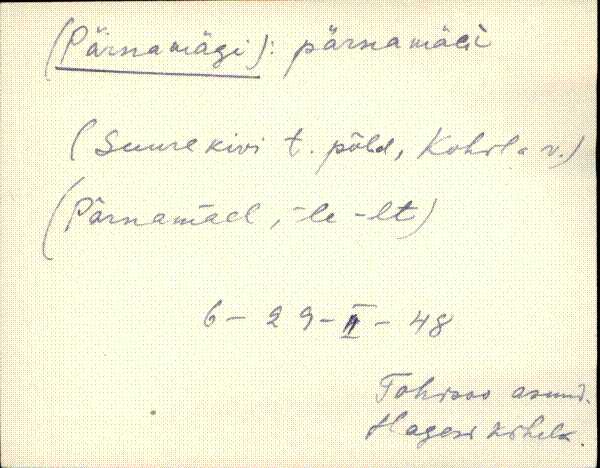 (Pärnamägi): pärnamäɢì
(Suurekivi t. põld, Kohila v.)
(Pärnamäel, -le -lt)
6 - 29 - II - 48
Tohisoo asund.
Hageri kihelk.